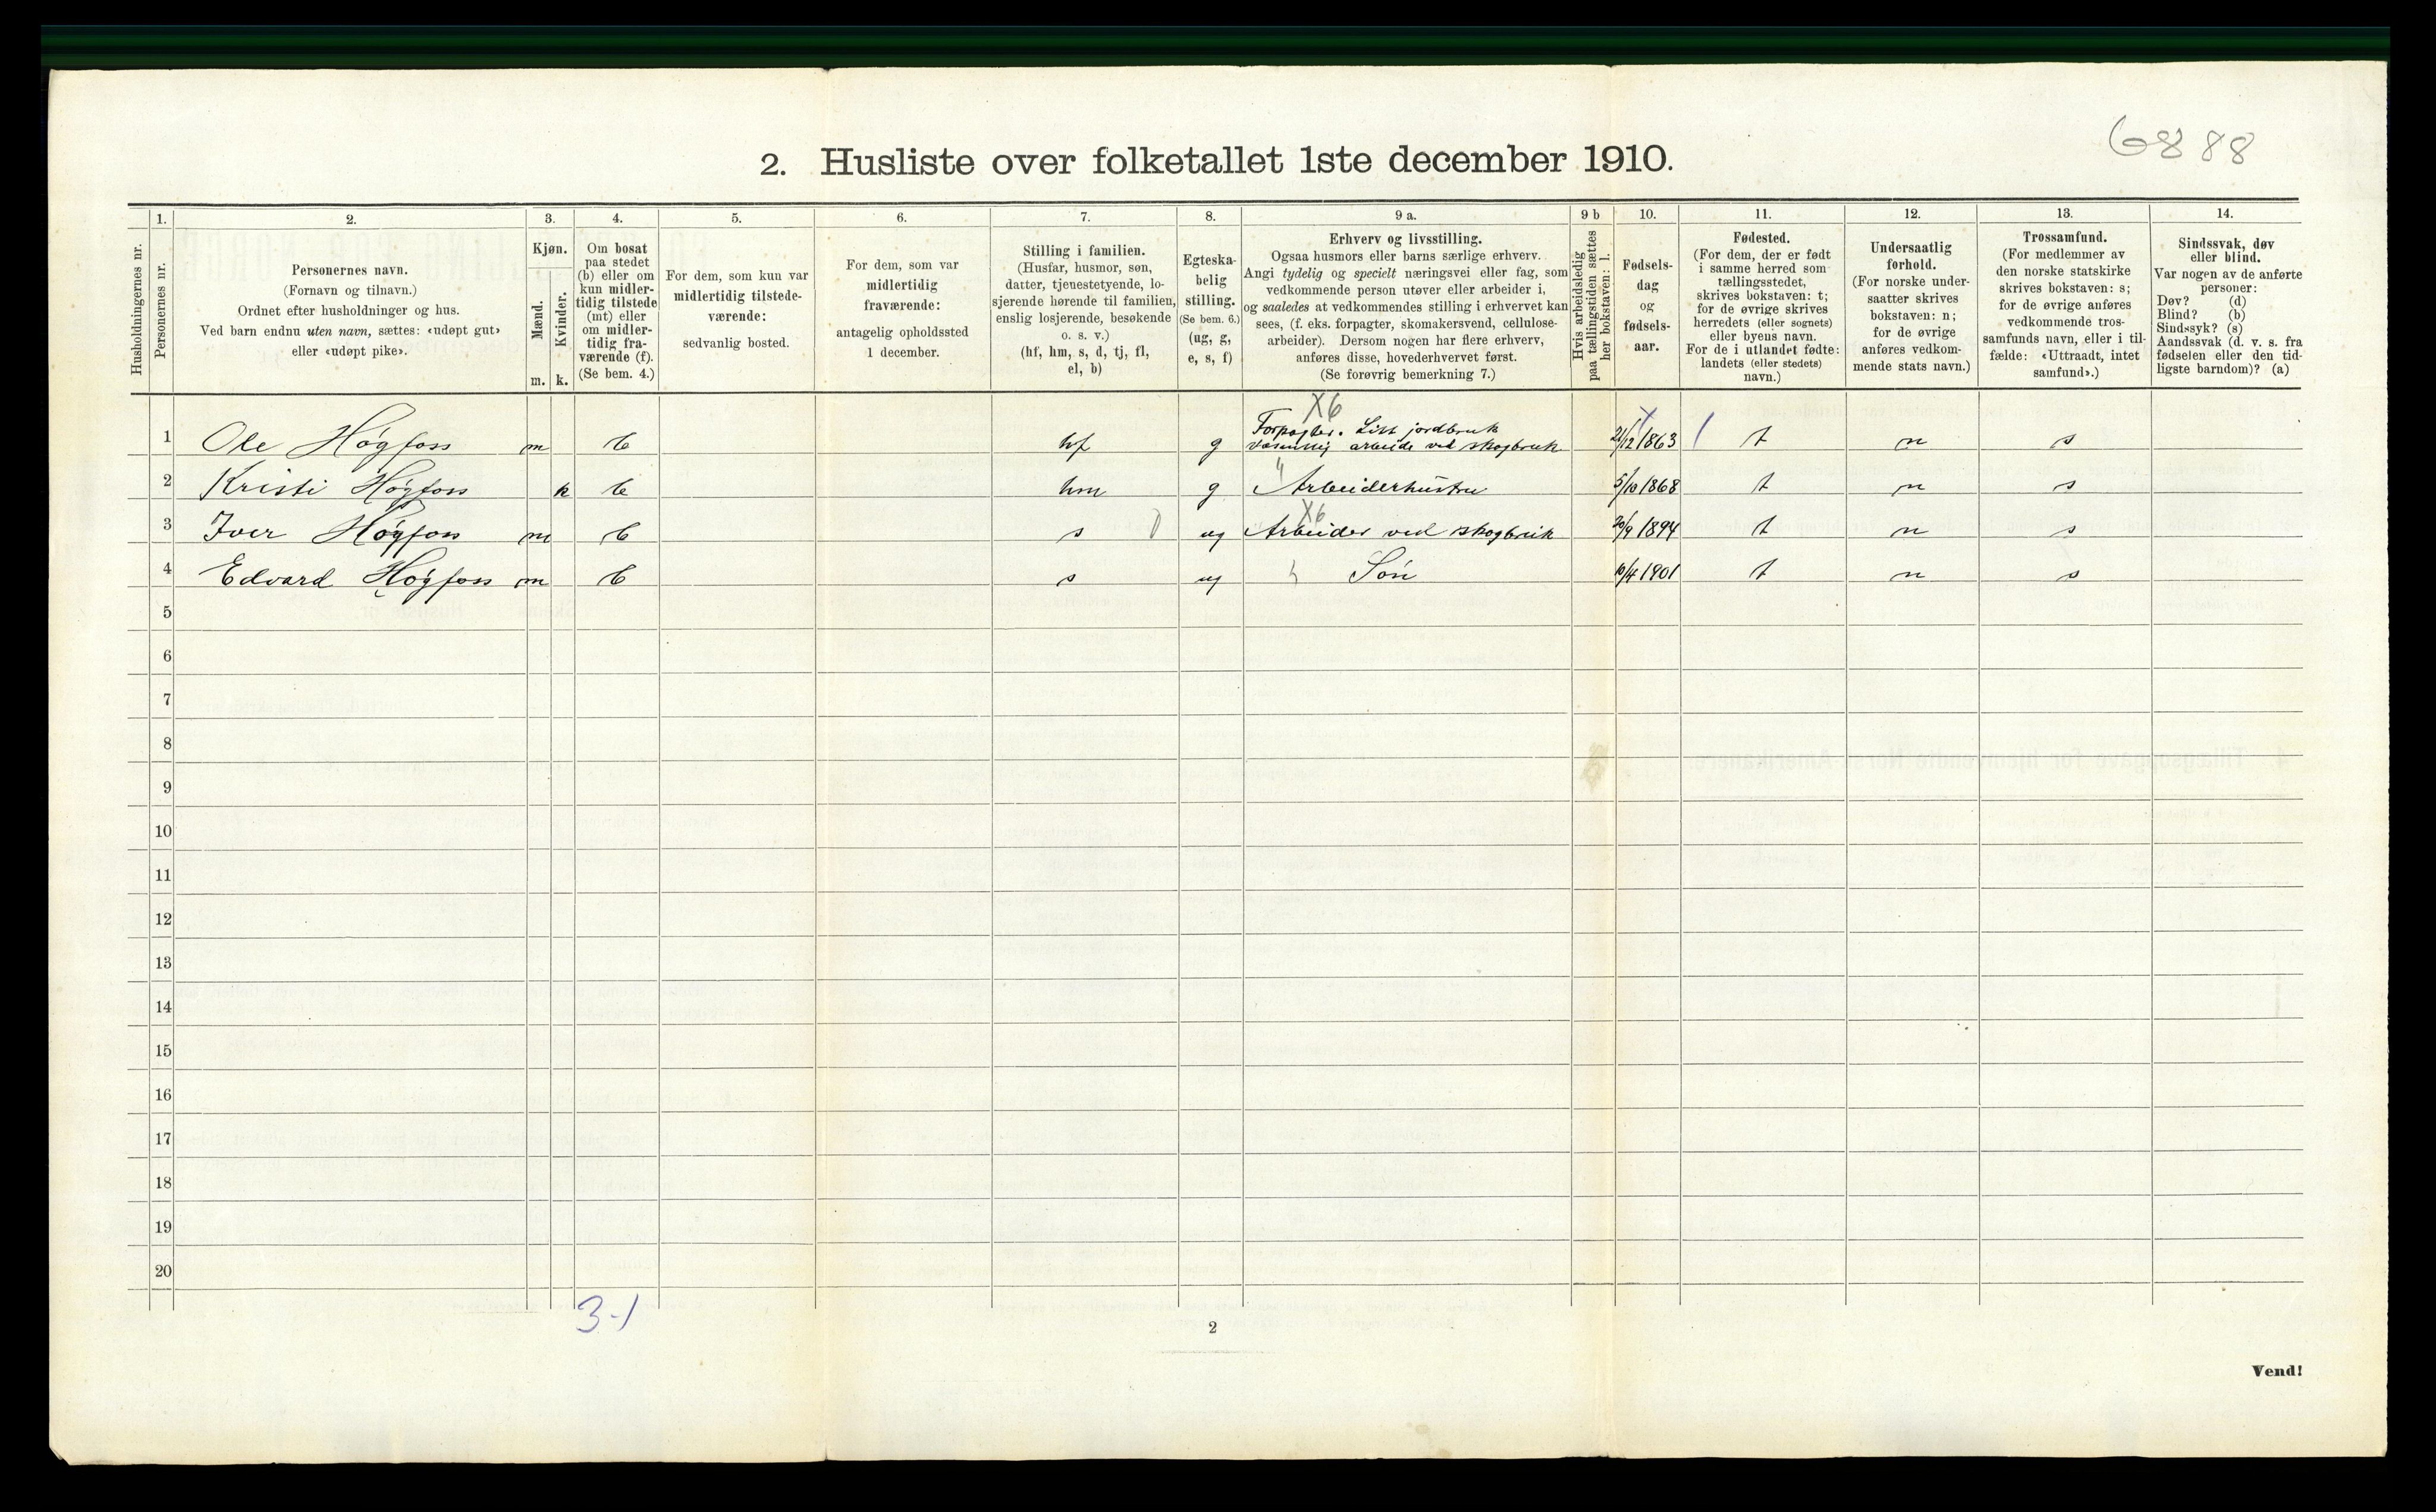 6888
2. Husliste over folketallet 1ste december 1910.
1. 2. 3. 4. 5. 6. 7. 8. 9 a. 9 b 10. 11. 12. 13. 14.
Husholdningernes nr.
Personernes nr.
Personernes navn.
(Fornavn og tilnavn.)
Ordnet efter husholdninger og hus.
Ved barn endnu uten navn, sættes: «udøpt gut»
eller «udøpt pike».
Kjøn.
Mænd.
Kvinder.
m. k.
Om bosat
paa stedet
(b) eller om
kun midler-
tidig tilstede
(mt) eller
om midler-
tidig fra-
værende (f).
(Se bem. 4.)
For dem, som kun var
midlertidig tilstede-
værende:
sedvanlig bosted.
For dem, som var
midlertidig
fraværende:
antagelig opholdssted
1 december.
Stilling i familien.
(Husfar, husmor, søn,
datter, tjenestetyende, lo-
sjerende hørende til familien,
enslig losjerende, besøkende
o. s. v.)
(hf, hm, s, d, tj, fl,
el, b)
Egteska-
belig
stilling.
(Se bem. 6.)
(ug, g,
e, s, f)
Erhverv og livsstilling.
Ogsaa husmors eller barns særlige erhverv.
Angi tydelig og specielt næringsvei eller fag, som
vedkommende person utøver eller arbeider i,
og saaledes at vedkommendes stilling i erhvervet kan
sees, (f. eks. forpagter, skomakersvend, cellulose-
arbeider). Dersom nogen har flere erhverv,
anføres disse, hovederhvervet først.
(Se forøvrig bemerkning 7.)
Hvis arbeidsledig
paa tællingstiden sættes
her bokstaven: l.
Fødsels-
dag
og
fødsels-
aar.
Fødested.
(For dem, der er født
i samme herred som
tællingsstedet,
skrives bokstaven: t;
for de øvrige skrives
herredets (eller sognets)
eller byens navn.
For de i utlandet fødte:
landets (eller stedets)
navn.)
Undersaatlig
forhold.
(For norske under-
saatter skrives
bokstaven: n;
for de øvrige
anføres vedkom-
mende stats navn.)
Trossamfund.
(For medlemmer av
den norske statskirke
skrives bokstaven: s;
for de øvrige anføres
vedkommende tros-
samfunds navn, eller i til-
fælde: «Uttraadt, intet
samfund».)
Sindssvak, døv
eller blind.
Var nogen av de anførte
personer:
Døv? (d)
Blind? (b)
Sindssyk? (s)
Aandssvak (d. v. s. fra
fødselen eller den tid-
ligste barndom)? (a)
X6
Forpagter. Litt jordbruk
1 Ole Høgfoss m b hf g væsentlig arbeide ved skogbruk 21/12 1863 t n s
2 Kristi Høgfoss k b hm g Arbeiderhustru 5/10 1868 t n s
X6
3 Iver Høgfoss m b s ug Arbeider ved skogbruk 20/9 1894 t n s
4 Edvard Høgfoss m b s ug Søn 10/4 1901 t n s
5
6
7
8
9
10
11
12
13
14
15
16
17
18
19
20
3-1
2
Vend!